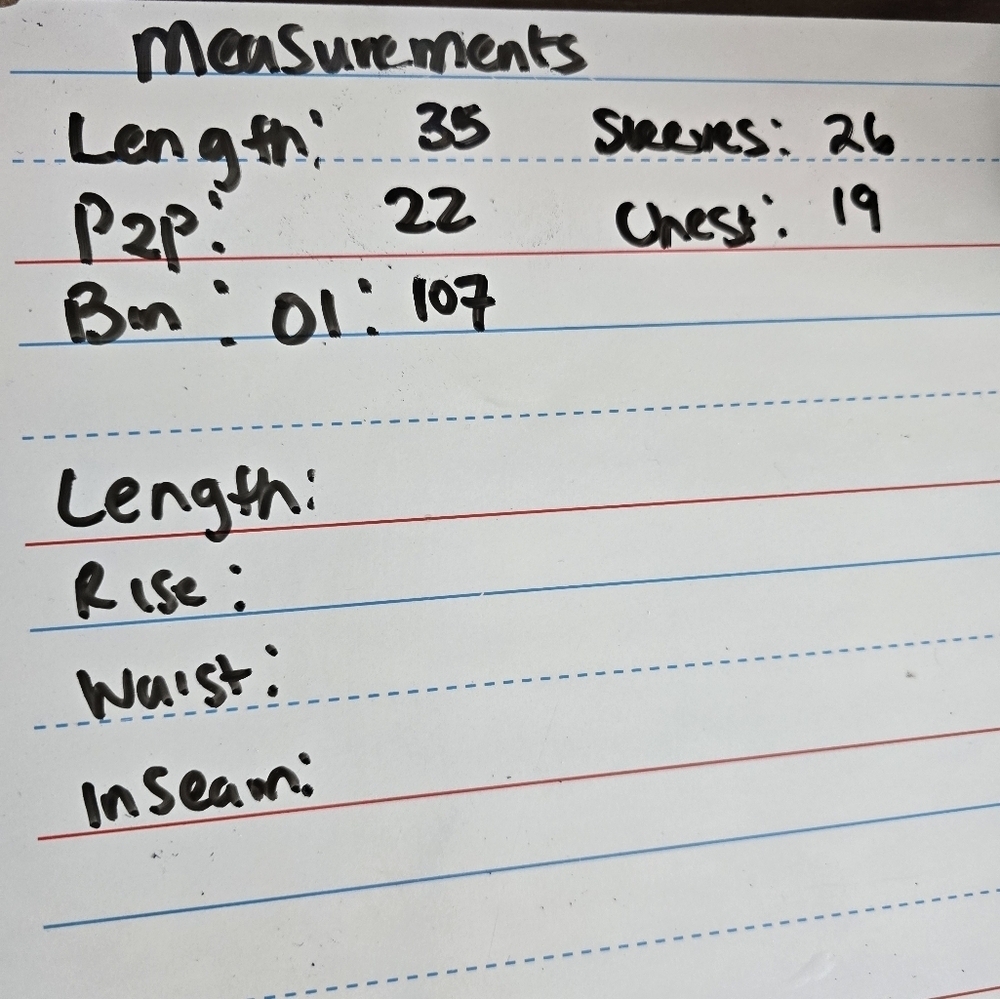 Measurements
Length: 35 Sleeves: 26
P2P: 22 Chest: 19
Bin: 01: 107
Length:
Rise:
Waist:
Inseam: